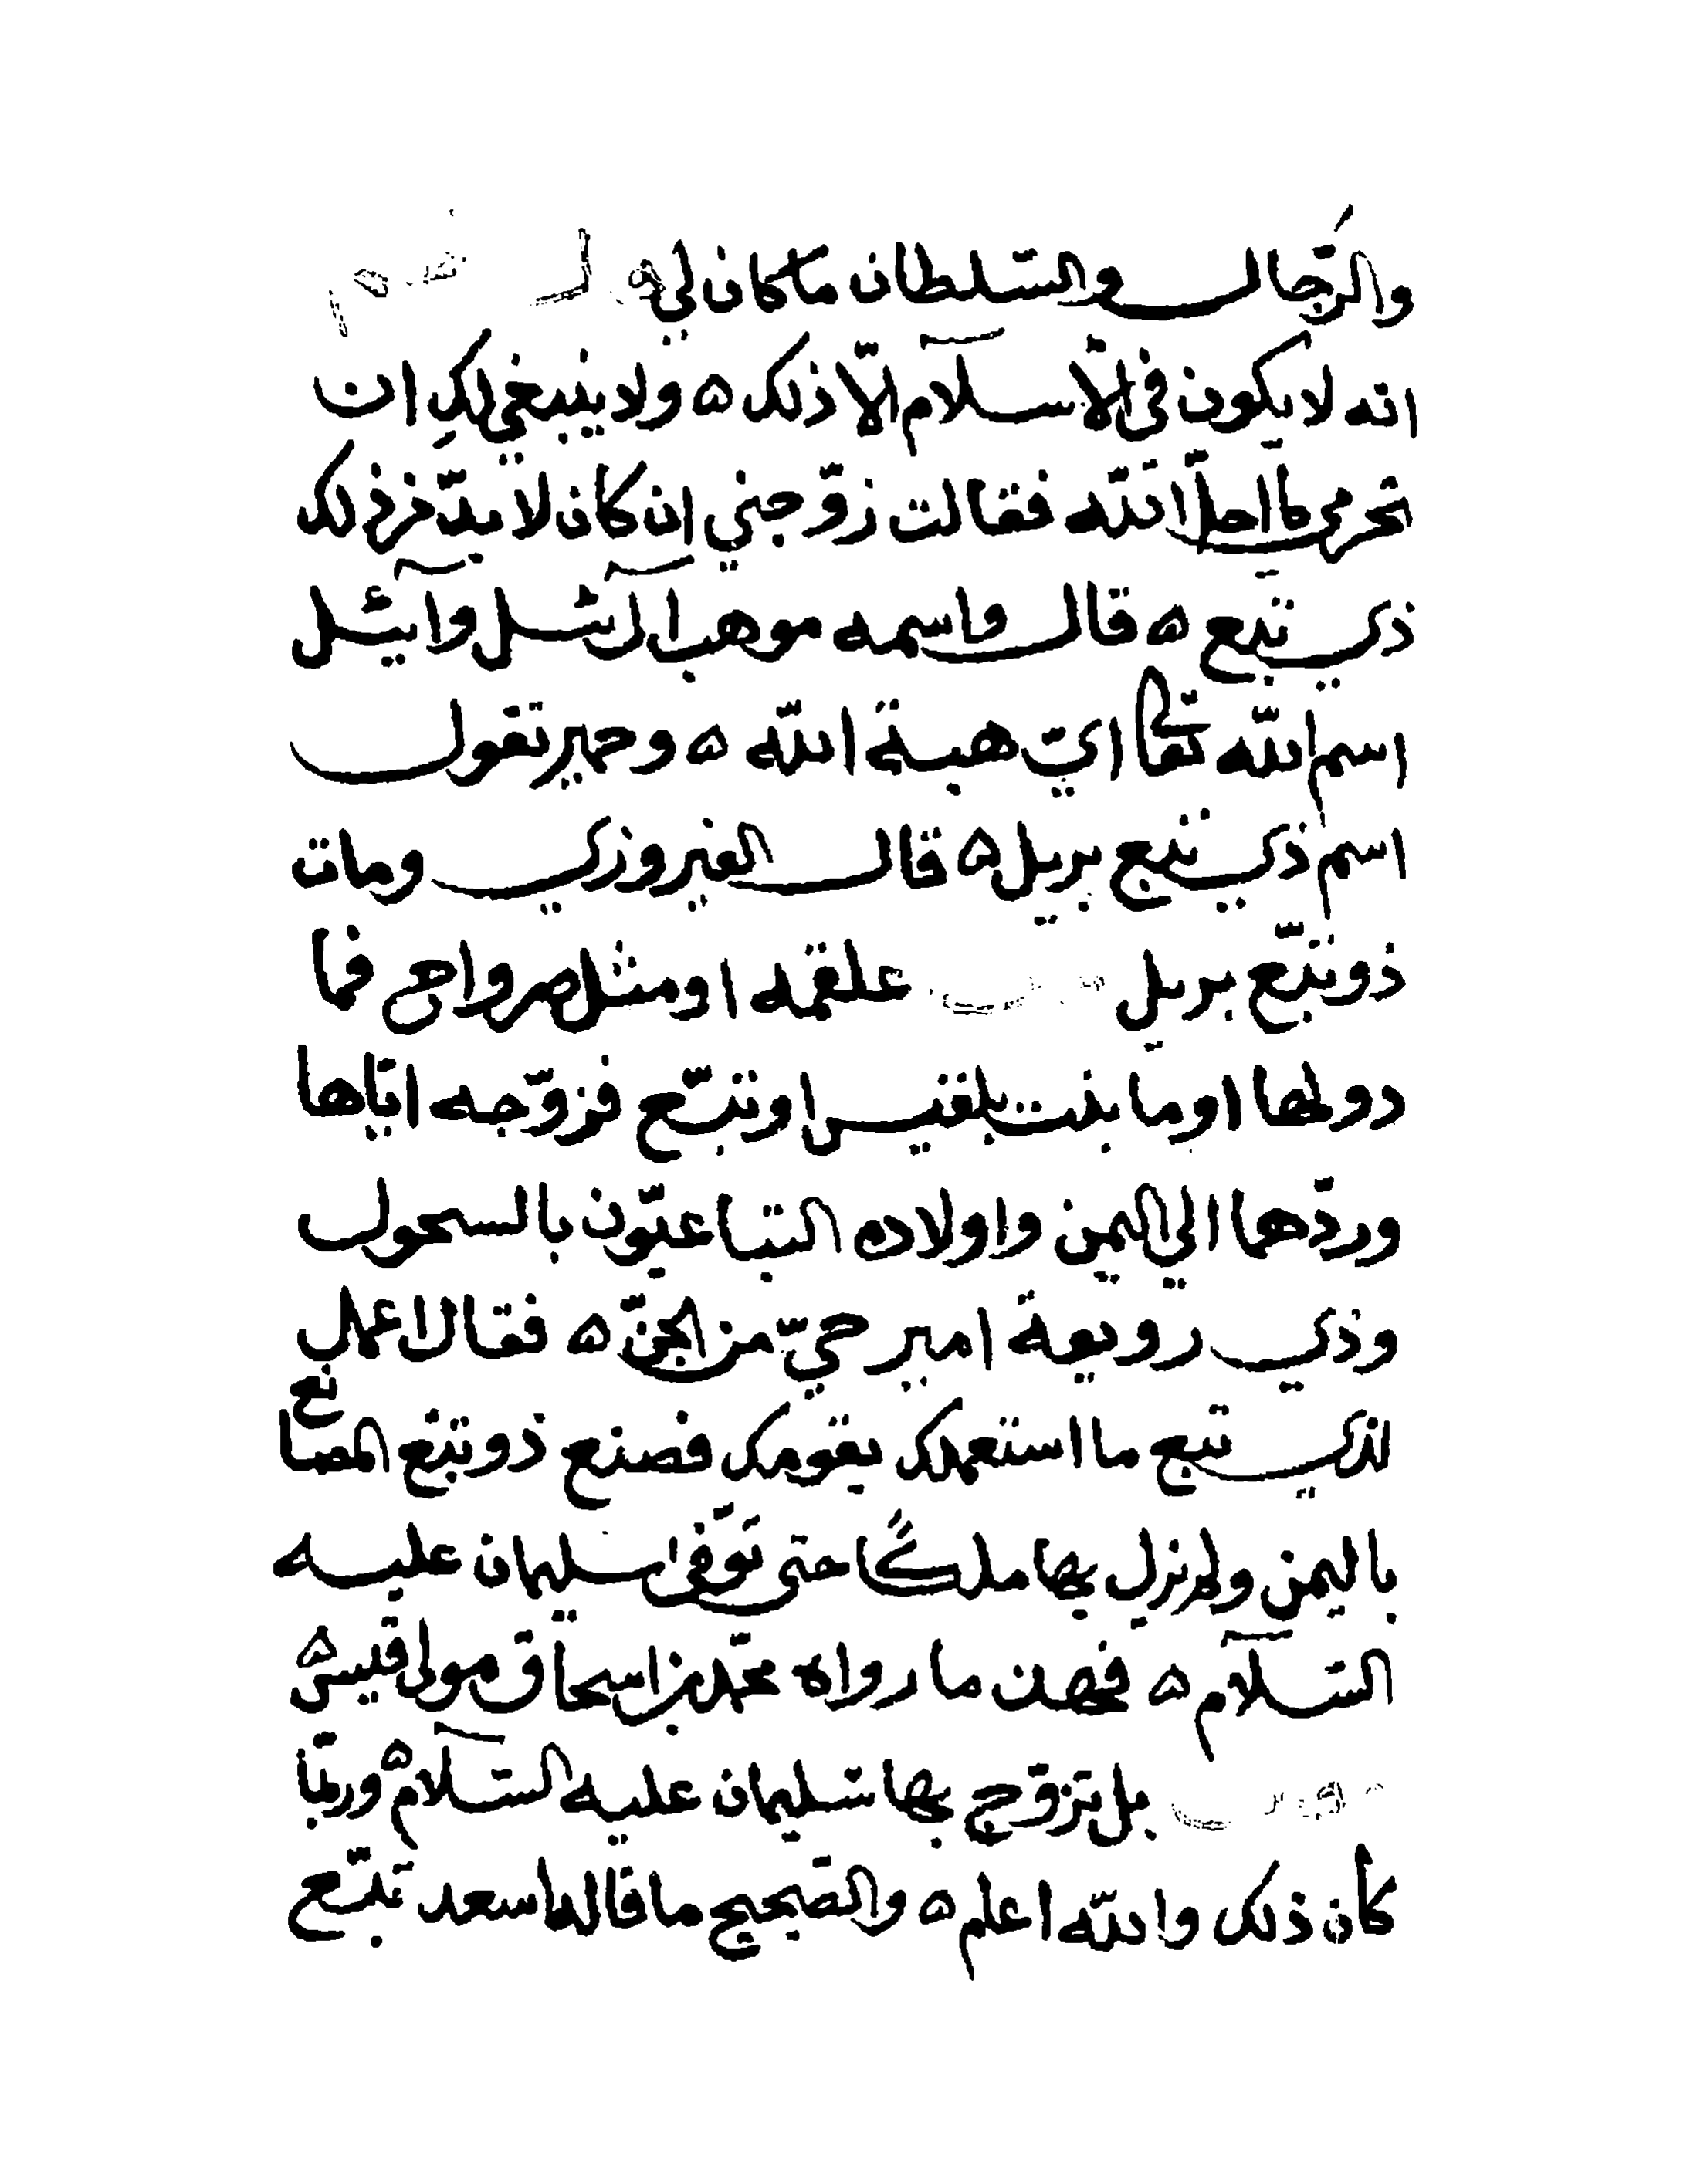 والرّجال والسّلطان ما كان لي
انه لا يكون في الاسلام الّا ذلك ۵ ولا ينبغي لكِ ان
تحرمي ما احل الله فقالت زوّجني ان كان لا بدّ من ذلك
ذي تبع ۵ قال واسمه موهب آل ئيل وآئيل
اسم الله تعالى اي هبة الله ۵ وحمير تقول
اسم ذي تبع بريل ۵ قال الفيروزي ومات
ذو تبّع بريل علقمه او مثل صرواح فما
دونها او ما بنت بلقيس او تبّع فزوّجه ايّاها
وردّها الي اليمن واولاده التباعيّون بالسحول
وذي رويعة امير حيّ من الجنّ ۵ فقال اعمل
لذي تبع ما استعملك بقومك فصنع ذو تبع المصانع
باليمن ولم يزل بها ملكًا حتى توفى سليمان عليه
السّلام ۵ فهذا ما رواه محمّد بن اسحاق مولى قيس ۵
بل تزوّج بها سليمان عليه السّلام ۵ وربّما
كان ذلك والله اعلم ۵ والصّحيح ما قال اسعد تبّع